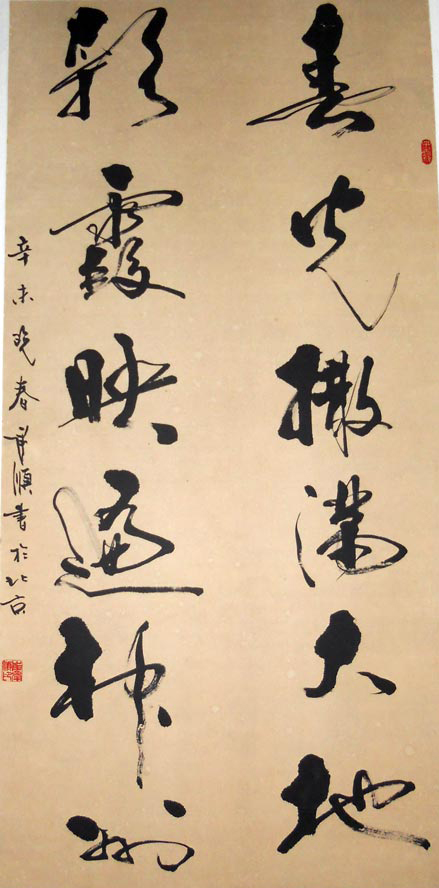 春光撒滿大地
彩霞映遍神州
辛未晚春順書於北京